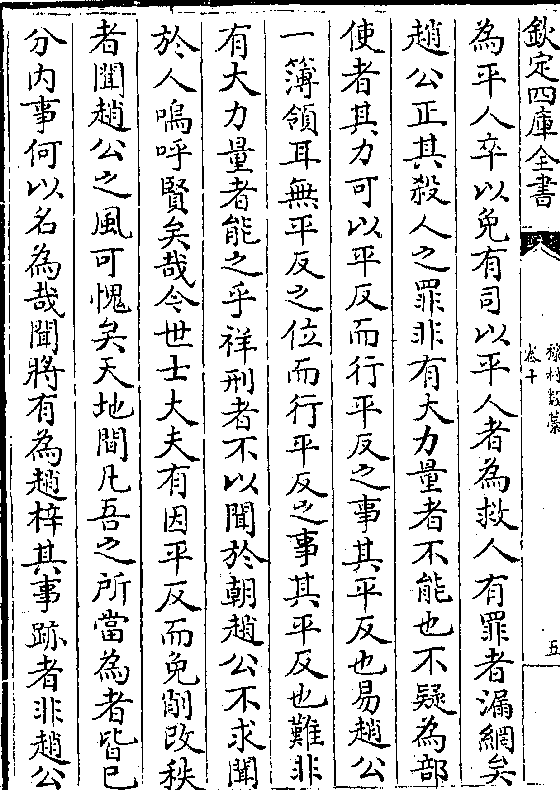 欽定四庫全書
卷十
五
為平人卒以免有司以平人者為救人有罪者漏網矣
趙公正其殺人之罪非有大力量者不能也不疑為部
使者其力可以平反而行平反之事其平反也易趙公
一簿領耳無平反之位而行平反之事其平反也難非
有大力量者能之乎祥刑者不以聞於朝趙公不求聞
於人嗚呼賢矣哉今世士大夫有因平反而免削改秩
者聞趙公之風可愧矣天地間凡吾之所當為者皆已
分内事何以名為哉聞將有為趙梓其事跡者非趙公